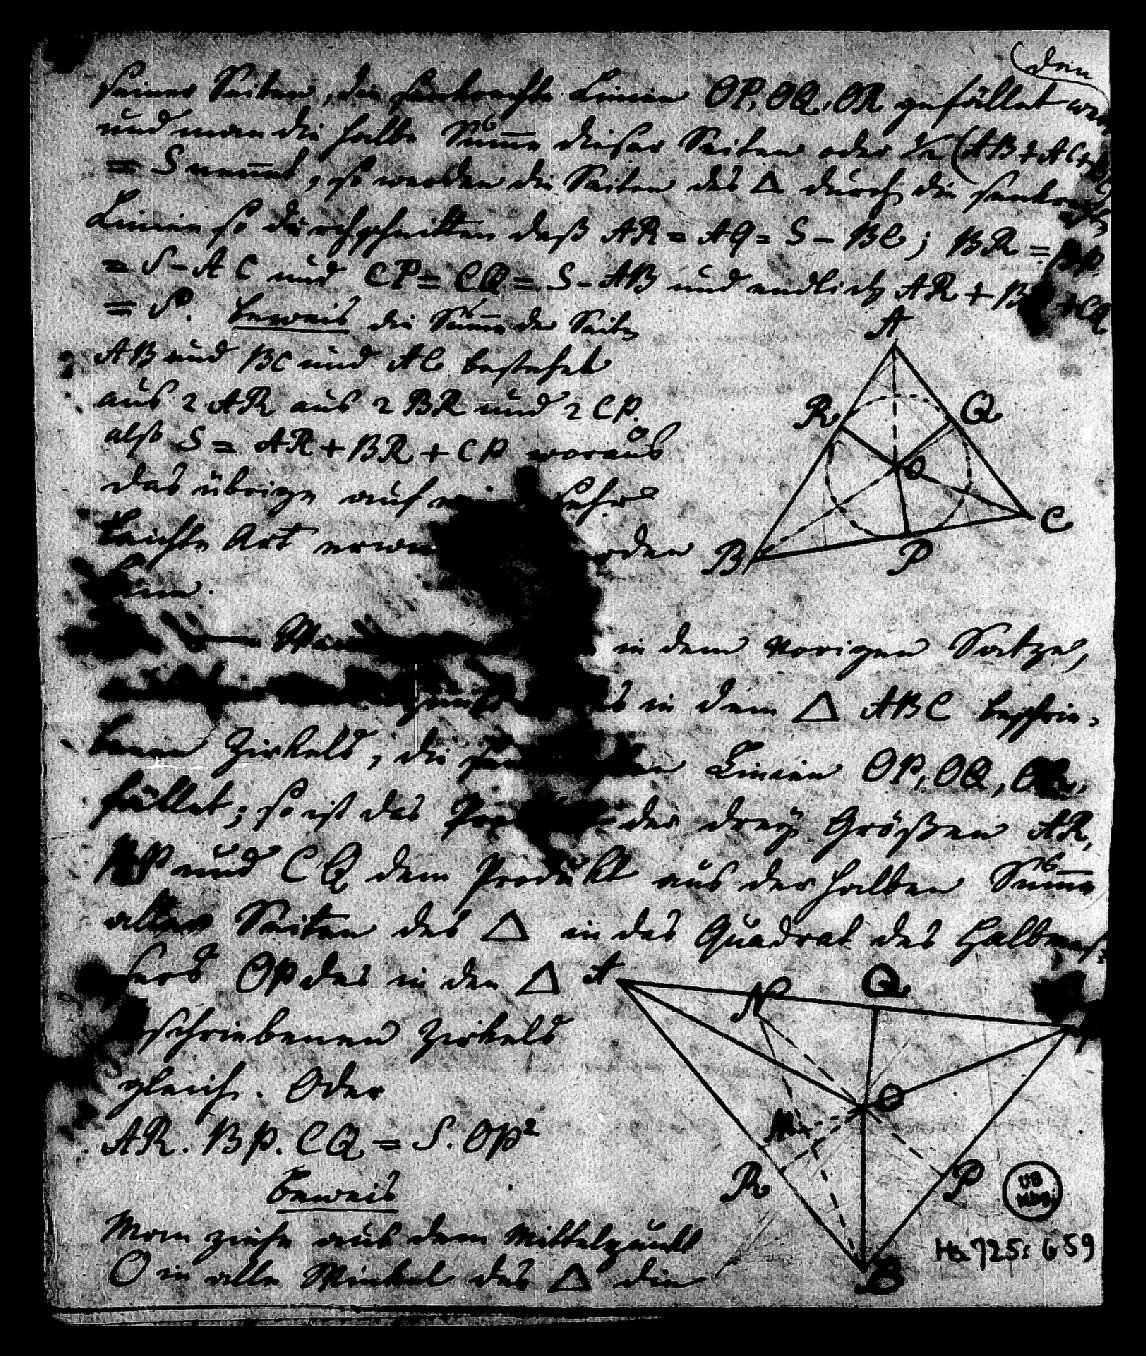 (den
seiner Seiten, die senkrechte Linien OP, OQ, OR gefället wer
und man die halbe Sum̅e dieser Seiten oder ½ (AB + AC +
= S nen̅et, so werden die Seiten des △ durch die senkrech
Linien so durchschnitten daß AR = AQ = S - BC; BR = BP
= S - AC und CP = CQ = S - AB und endlich AR + B + CQ
= S. Beweis die Sum̅e der Seiten
AB und BC und AC bestehet
aus 2 AR aus 2 BR und 2 CP.
also S = AR + BR + CP woraus
das übrige auf sehr
leichte Art erwie erden
kann.
in dem vorigen Satze,
in dem △ ABC beschrie-
benen Zirkels, die Linien OP, OQ, OR,
fället; so ist das der drey Größen AR,
BP und CQ dem Produkt aus der halben Sum̅e
aller Seiten des △ in das Quadrat des Halbmes-
sers OP des in den △
beschriebenen Zirkels
gleich. Oder
AR. BP. CQ = S. OP²
Beweis
Man ziehe aus dem Mittelpunkt
O in alle Winkel des △ die
A
R
Q
O
B
P
C
A
N
Q
O
M
R
P
B
UB
Hs 725: 659